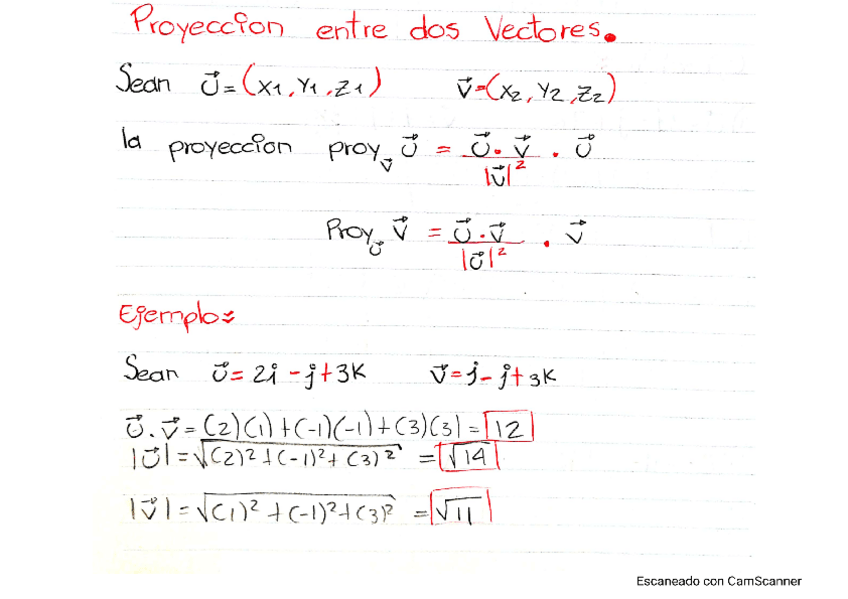 Proyeccion entre dos Vectores.
Sean U⃗=(X1,Y1,Z1) V⃗=(X2,Y2,Z2)
la proyeccion proy_V⃗ U⃗ = U⃗·V⃗/|V⃗|² · U⃗
Proy_U⃗ V⃗ = U⃗·V⃗/|U⃗|² · V⃗
Ejemplo:
Sean U⃗=2i-j+3K V⃗=j-j+3K
U⃗.V⃗=(2)(1)+(-1)(-1)+(3)(3)=12
|U⃗|=√(2)²+(-1)²+(3)² =√14
|V⃗|=√(1)²+(-1)²+(3)² =√11
Escaneado con CamScanner